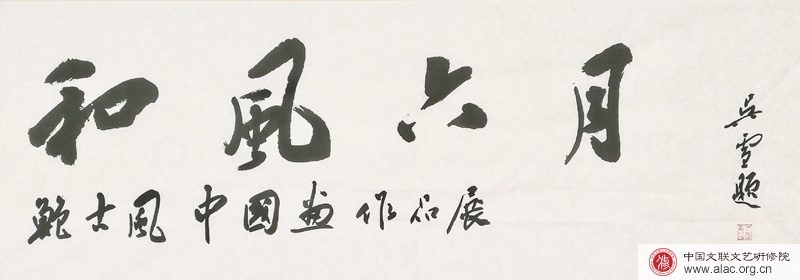 和風六月
鲍古風中國畫作品展
吴雪題
中国文联文艺研修院
www.alac.org.cn